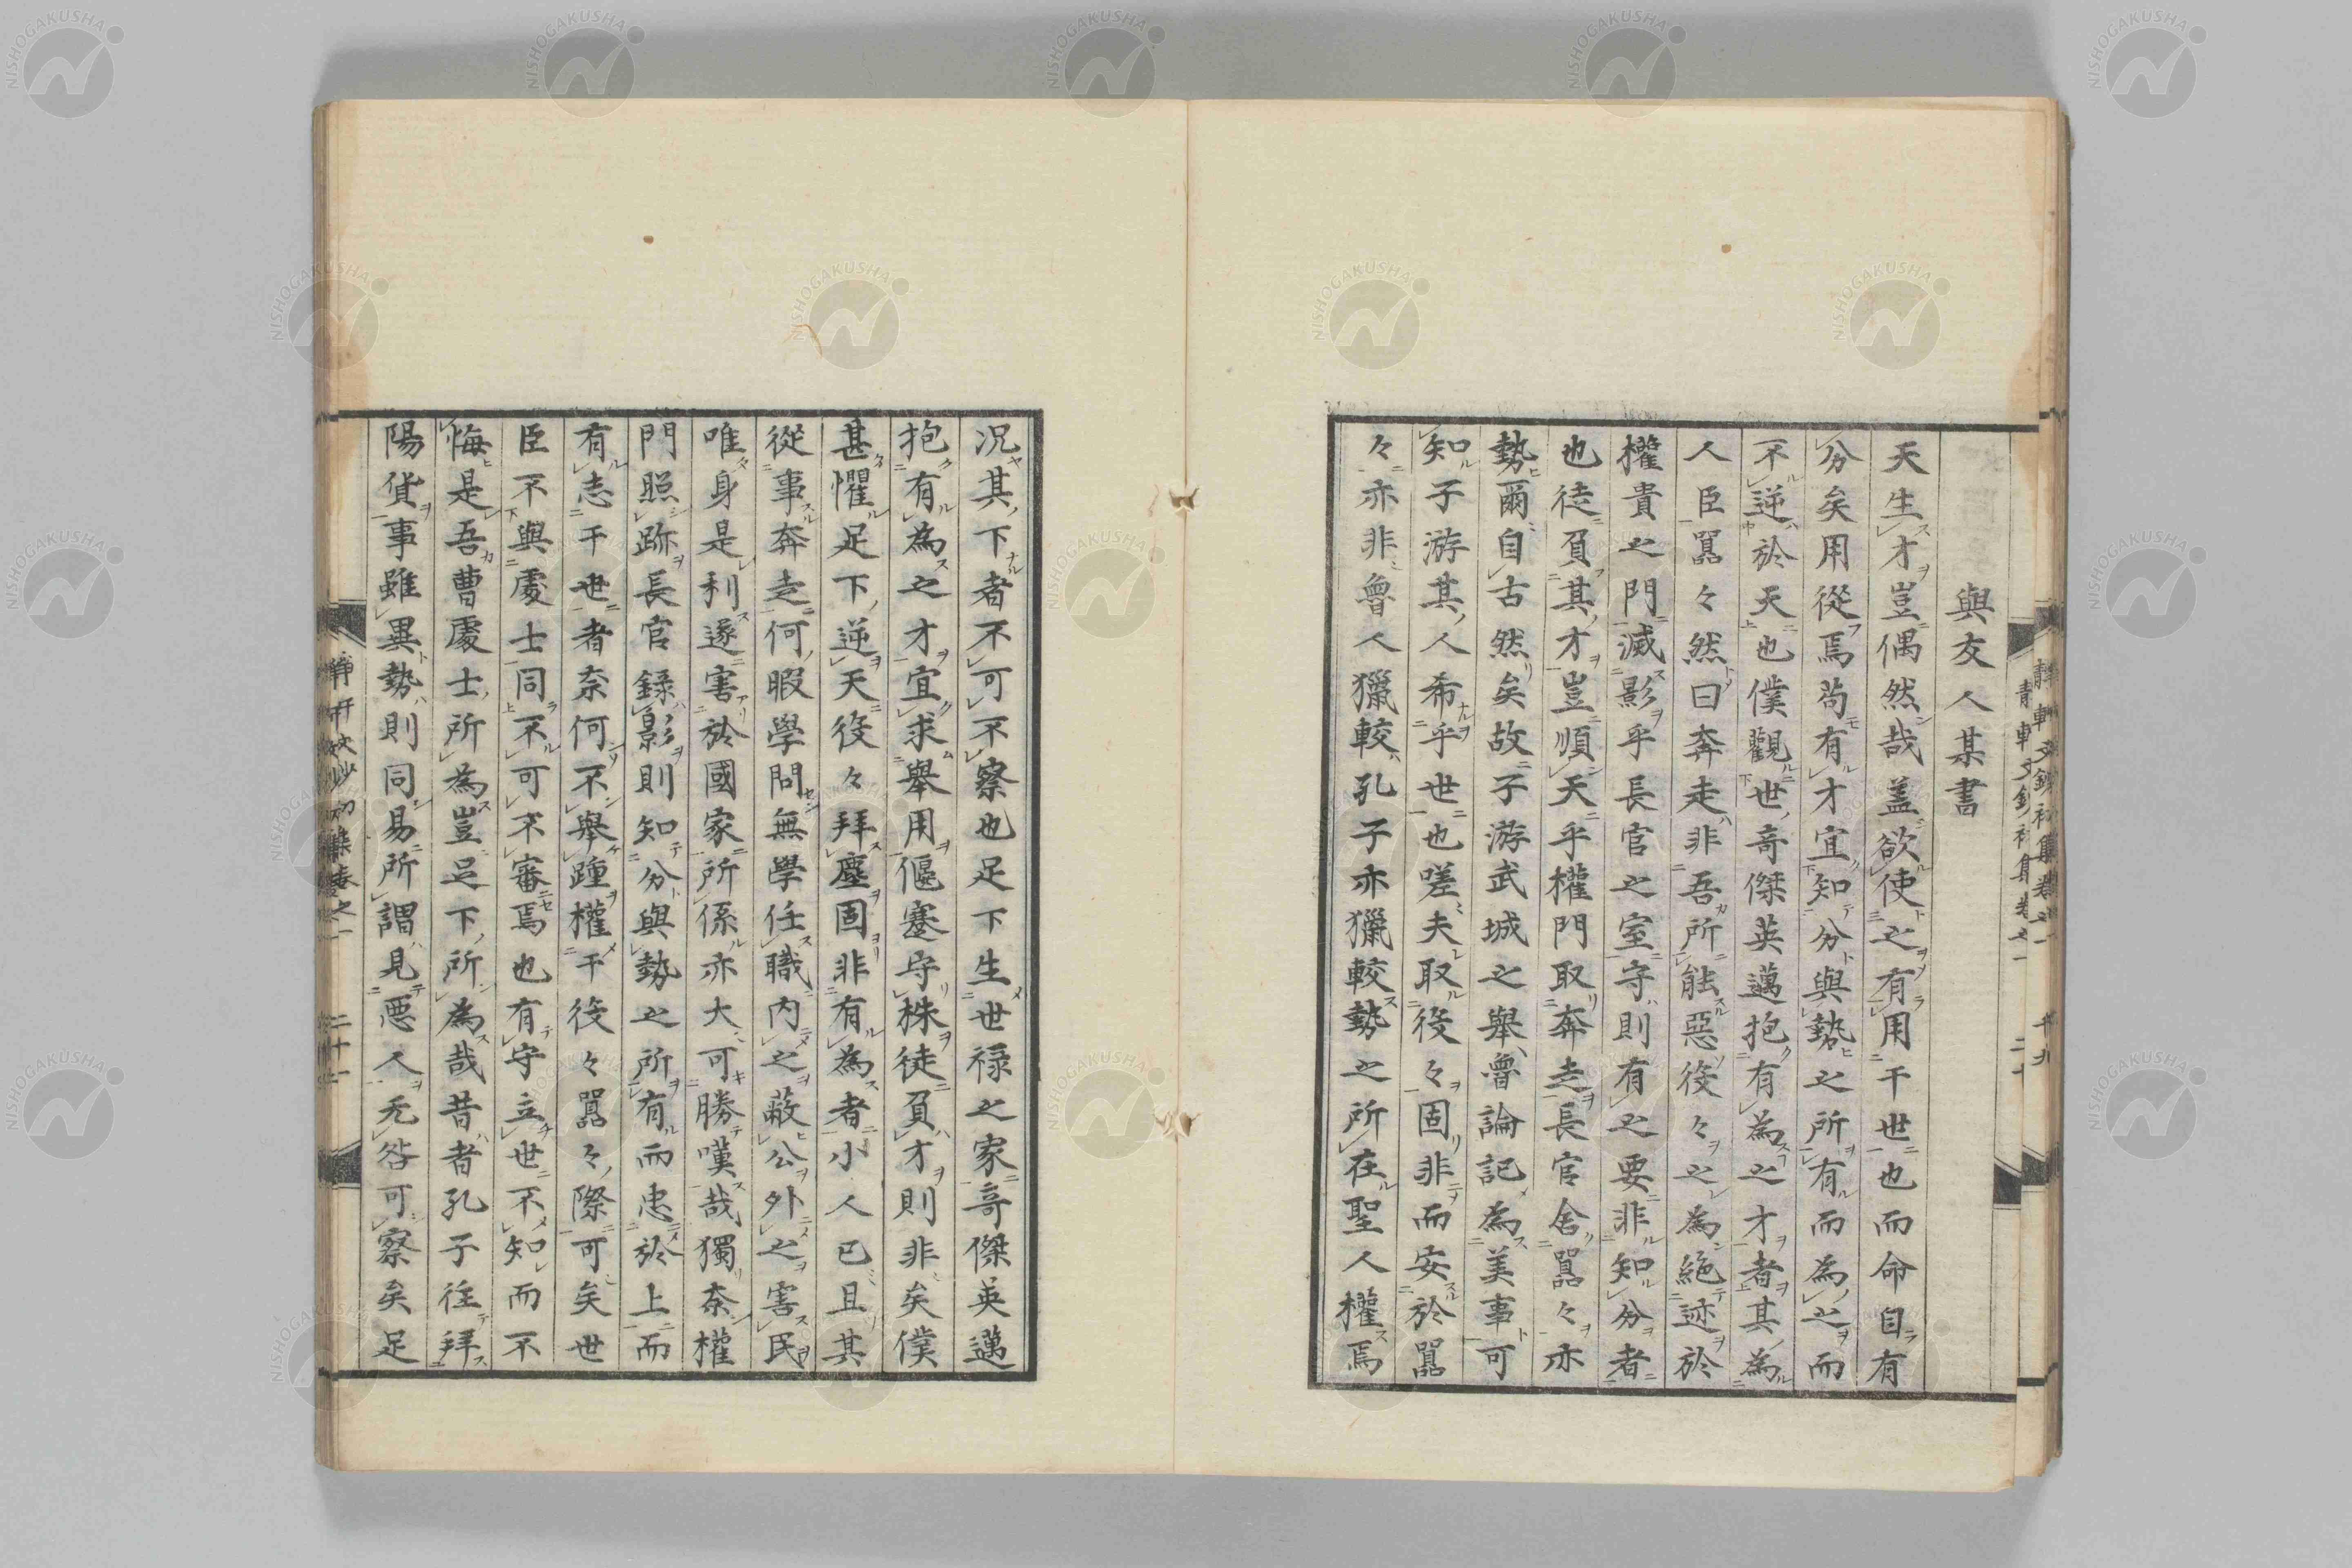 與友人某書
天生才豈偶然哉盖欲使之有用干世也而命自有
分矣用從焉苟有才宜知分與勢之所有而為之而
不逆於天也僕觀世奇傑英邁抱有為之才者其為
人臣嚚々然曰奔走非吾所能惡役々之為絶迹於
權貴之門滅影乎長官之室守則有之要非知分者
也徒負其才豈順天乎權門取奔走長官舍嚚々亦
勢爾自古然矣故子游武城之舉魯論記為美事可
知子游其人希乎世也嗟夫取役々固非而安於嚚
々亦非魯人獵較孔子亦獵較勢之所在聖人權焉
况其下者不可不察也足下生世禄之家奇傑英邁
抱有為之才宜求舉用傴蹇守株徒負才則非矣僕
甚懼足下逆天役々拜塵固非有為者小人已且其
從事奔走何暇學問無學任職内之蔽公外之害民
唯身是利遂害於國家所係亦大可勝嘆哉獨奈權
門照跡長官錄影則知分與勢之所有而忠於上而
有志干世者奈何不舉踵權干役々嚚々際可矣世
臣不與處士同不可不審焉也有守立世不知而不
悔是吾曹處士所為豈足下所為哉昔者孔子往拜
陽貨事雖異勢則同易所謂見悪人无咎可察矣足